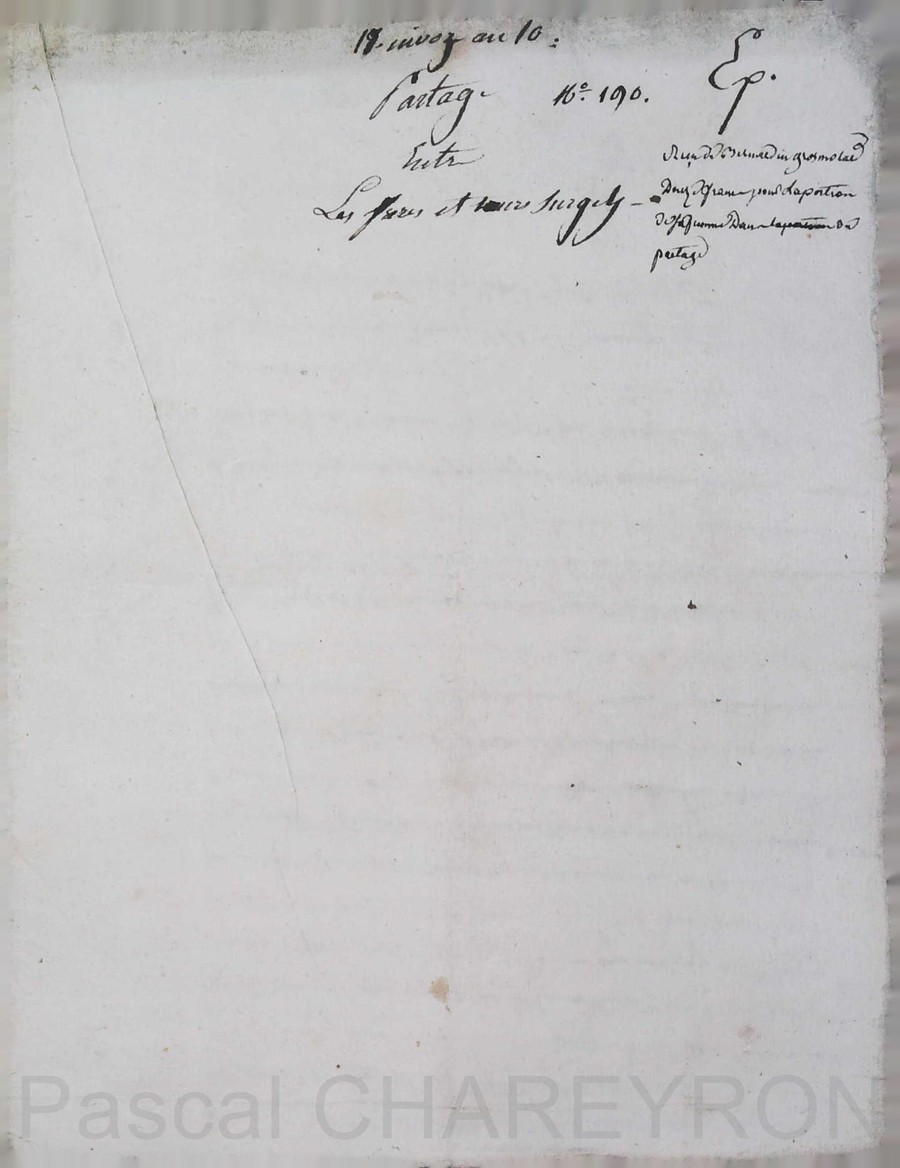 18 nivoz an 10.
Partage N.º 190. Ep.
Entre
Les freres et seurs Surgely
Reçu de Bernardin grosmolard
Douze francs pour la portion
de sa femme Dans la portion du
partage
Pascal CHAREYRON